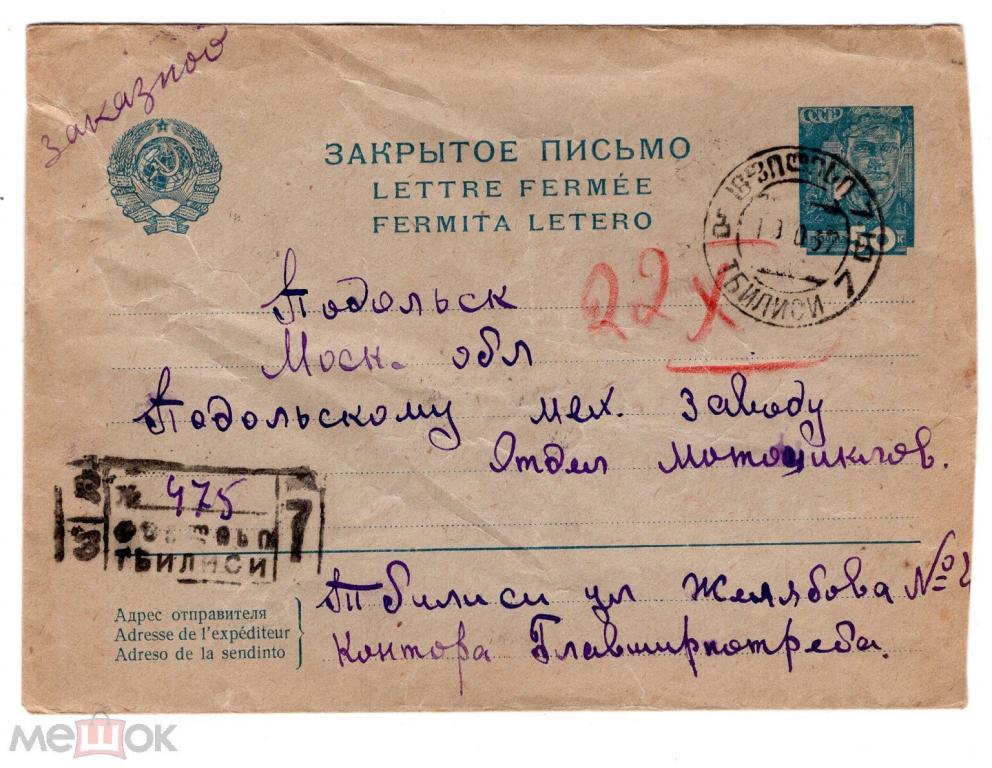 заказноо
ЗАКРЫТОЕ ПИСЬМО
LETTRE FERMÉE
FERMITA LETERO
СССР
50 К
ТБИЛИСИ 7
22 X
Подольск
Моск. обл
Подольскому мех. заводу
Отдел мотоциклов.
№ 475
7
ТБИЛИСИ
Тбилиси ул Желябова №
Контора Главширпотреба.
Адрес отправителя
Adresse de l'expéditeur
Adreso de la sendinto
мешок